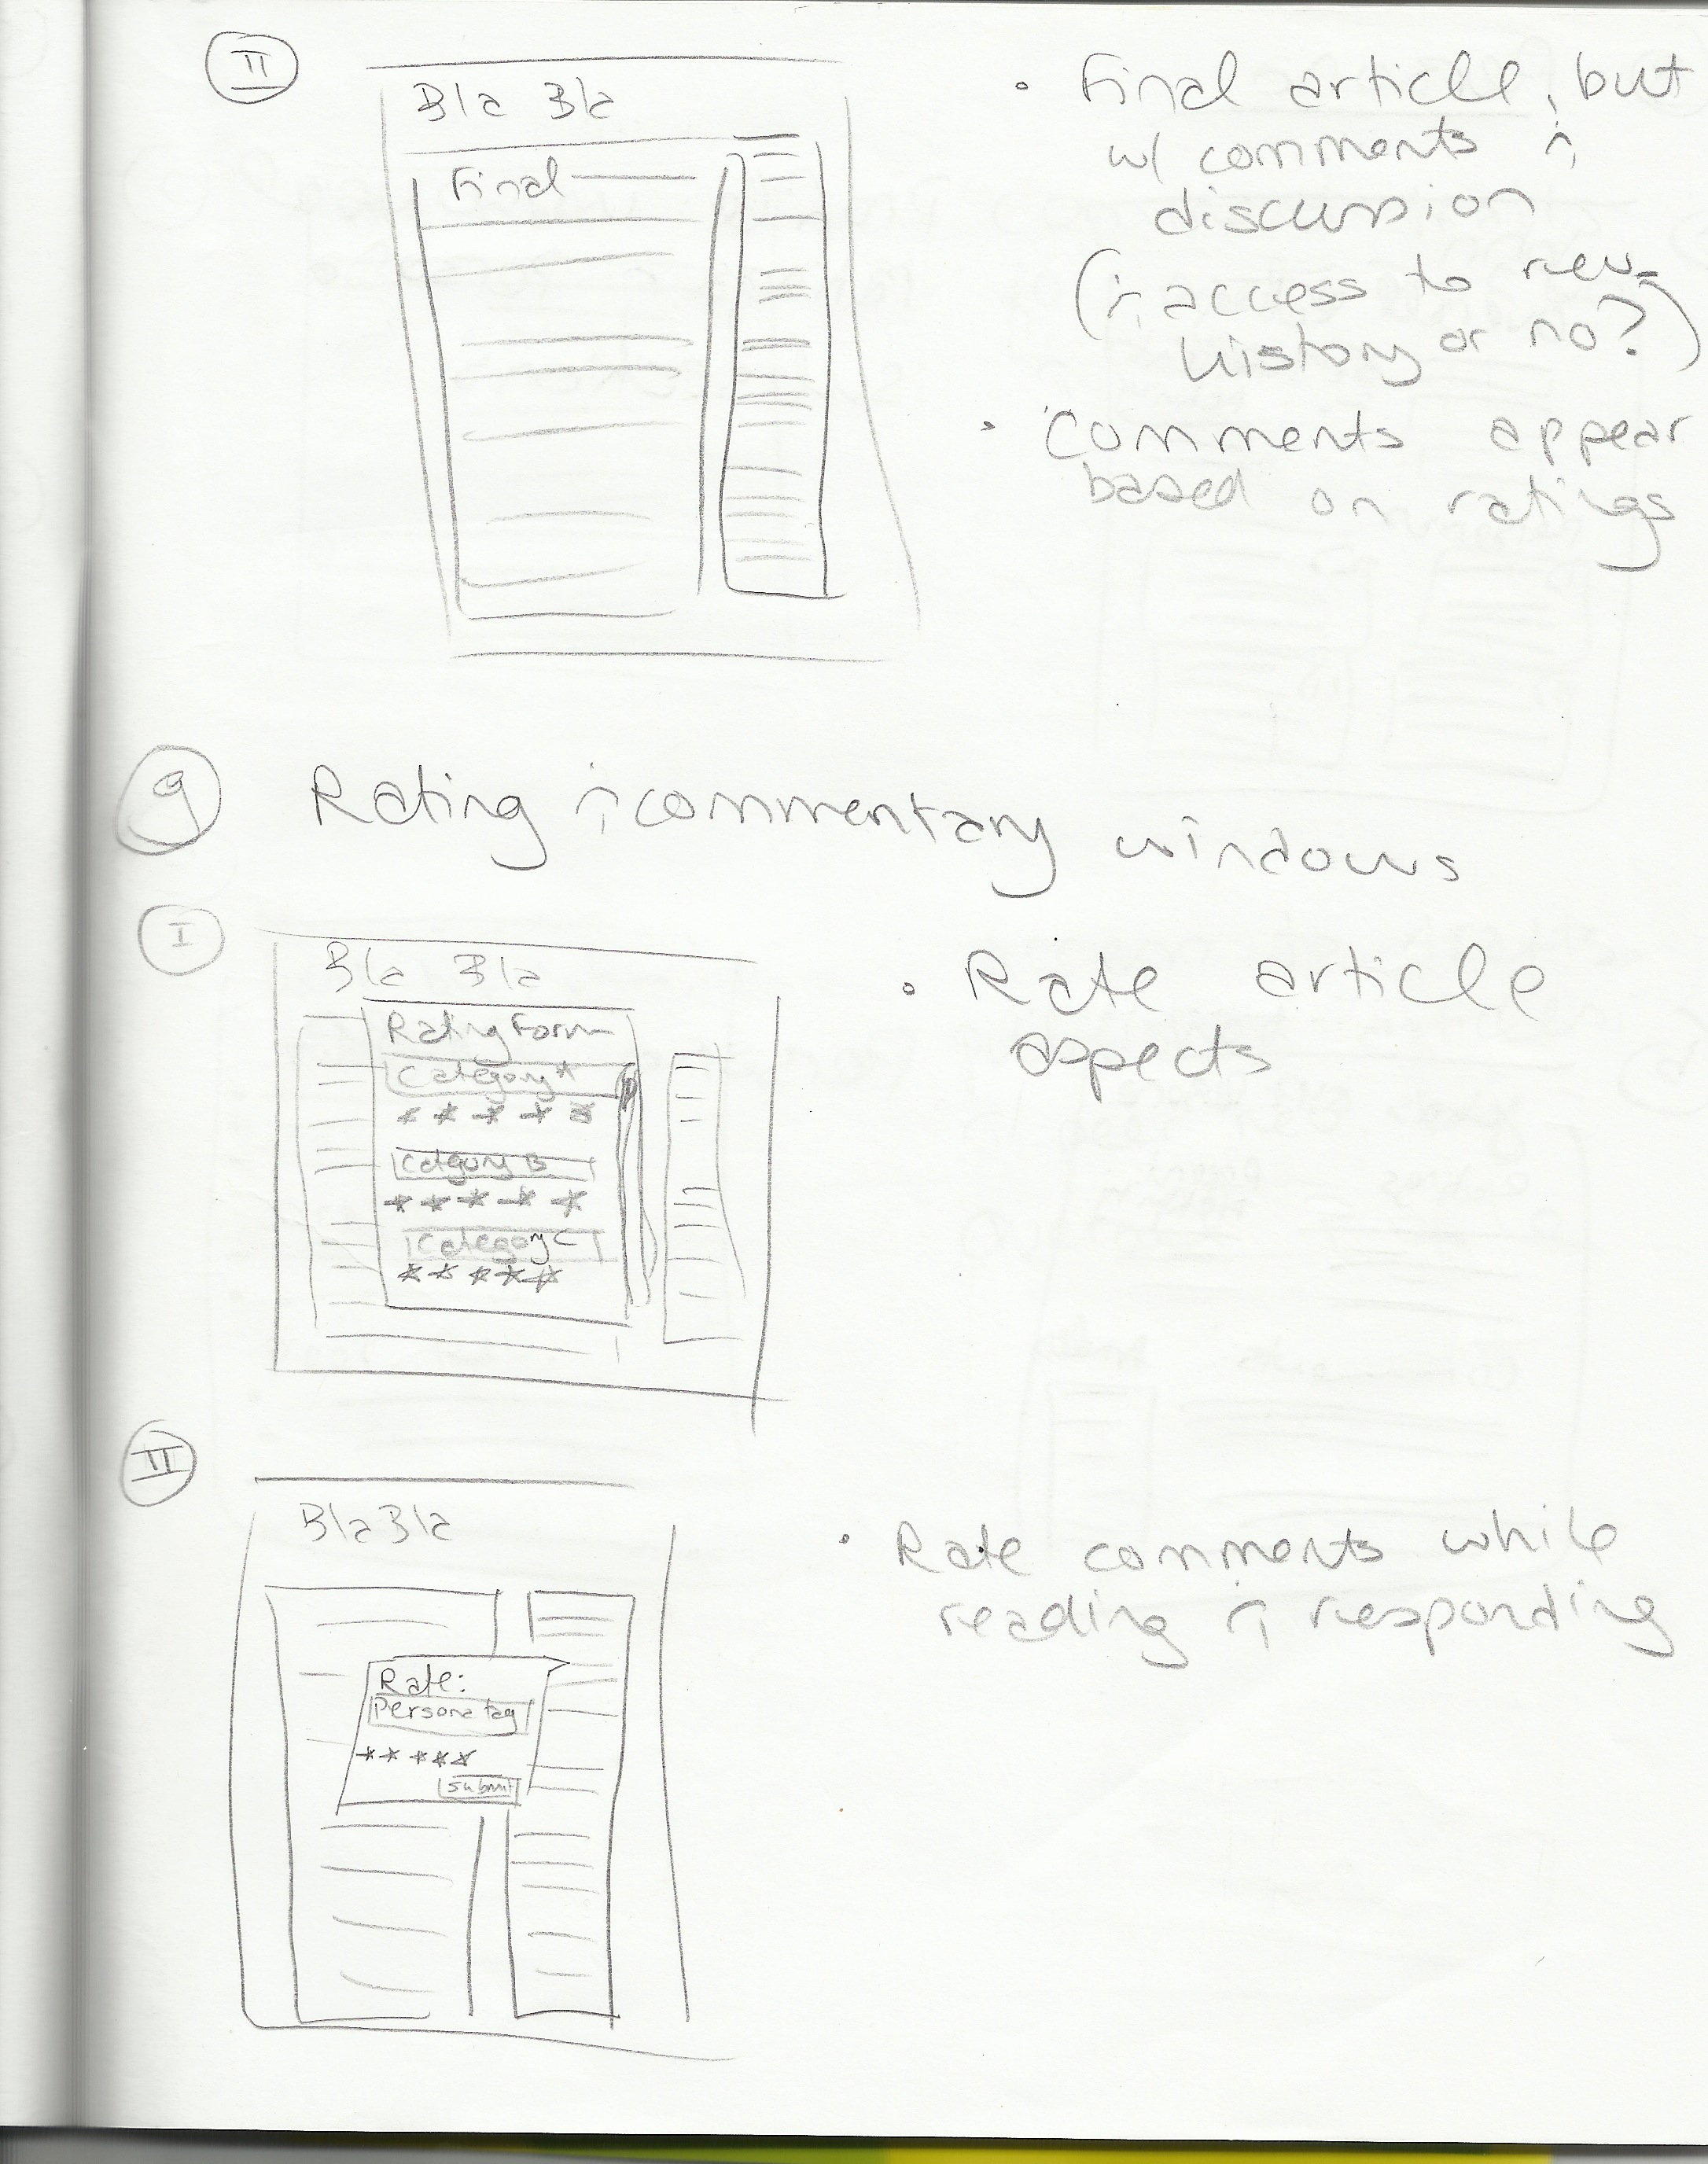 II
Bla Bla
Final
• Final article, but
w/ comments &
discussion
(& access to rev.
history or no?)
• Comments appear
based on ratings
9 Rating & commentary windows
I
Bla Bla
Rating Form
Category
* * * * *
Category B
* * * * *
Category C
* * * * *
• Rate article
aspects
II
Bla Bla
Rate:
Persona tag
* * * * *
submit
• Rate comments while
reading & responding